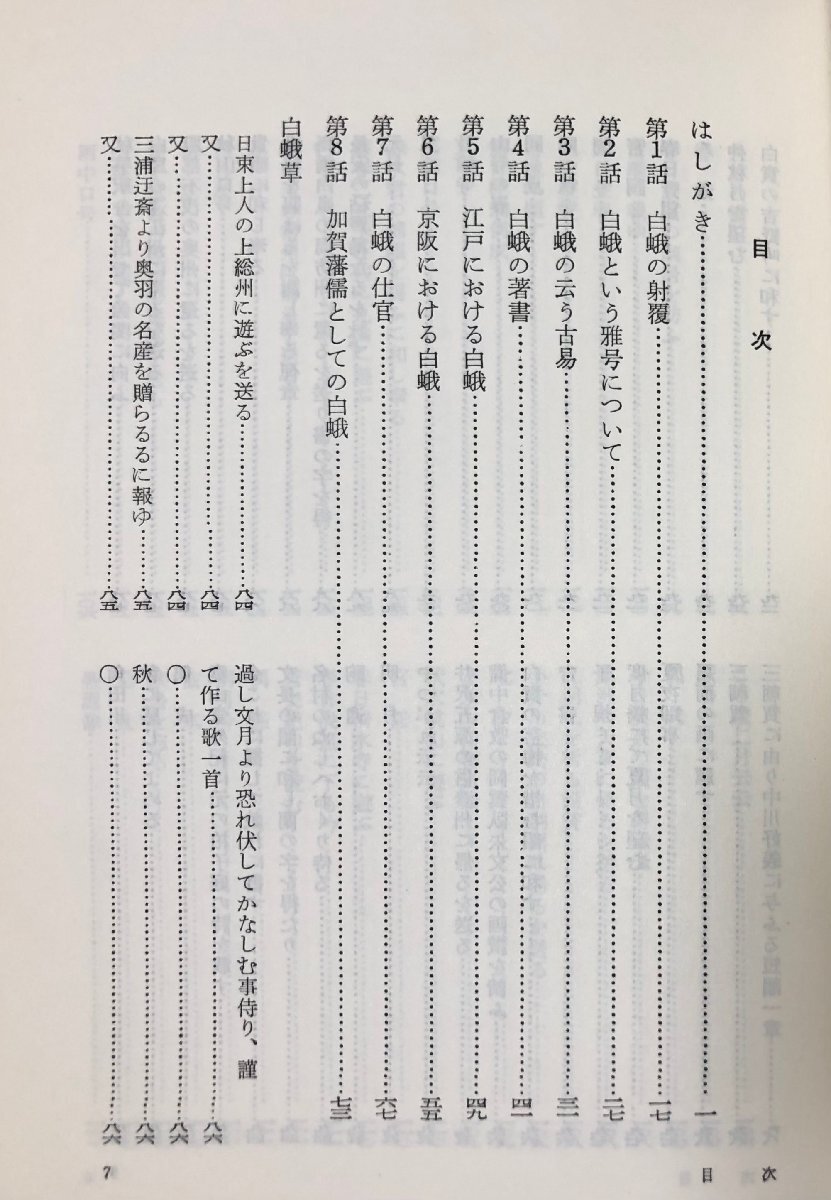 目次
はしがき……一
第1話 白蛾の射覆……一七
第2話 白蛾という雅号について……二七
第3話 白蛾の云う古易……三一
第4話 白蛾の著書……四一
第5話 江戸における白蛾……四九
第6話 京阪における白蛾……五五
第7話 白蛾の仕官……六七
第8話 加賀藩儒としての白蛾……七三
白蛾草
日東上人の上総州に遊ぶを送る……八四
又……八四
又……八四
三浦迂斎より奥羽の名産を贈らるるに報ゆ……八五
又……八五
過し文月より恐れ伏してかなしむ事侍り、謹
て作る歌一首……八六
〇……八六
秋……八六
〇……八六
目次
7